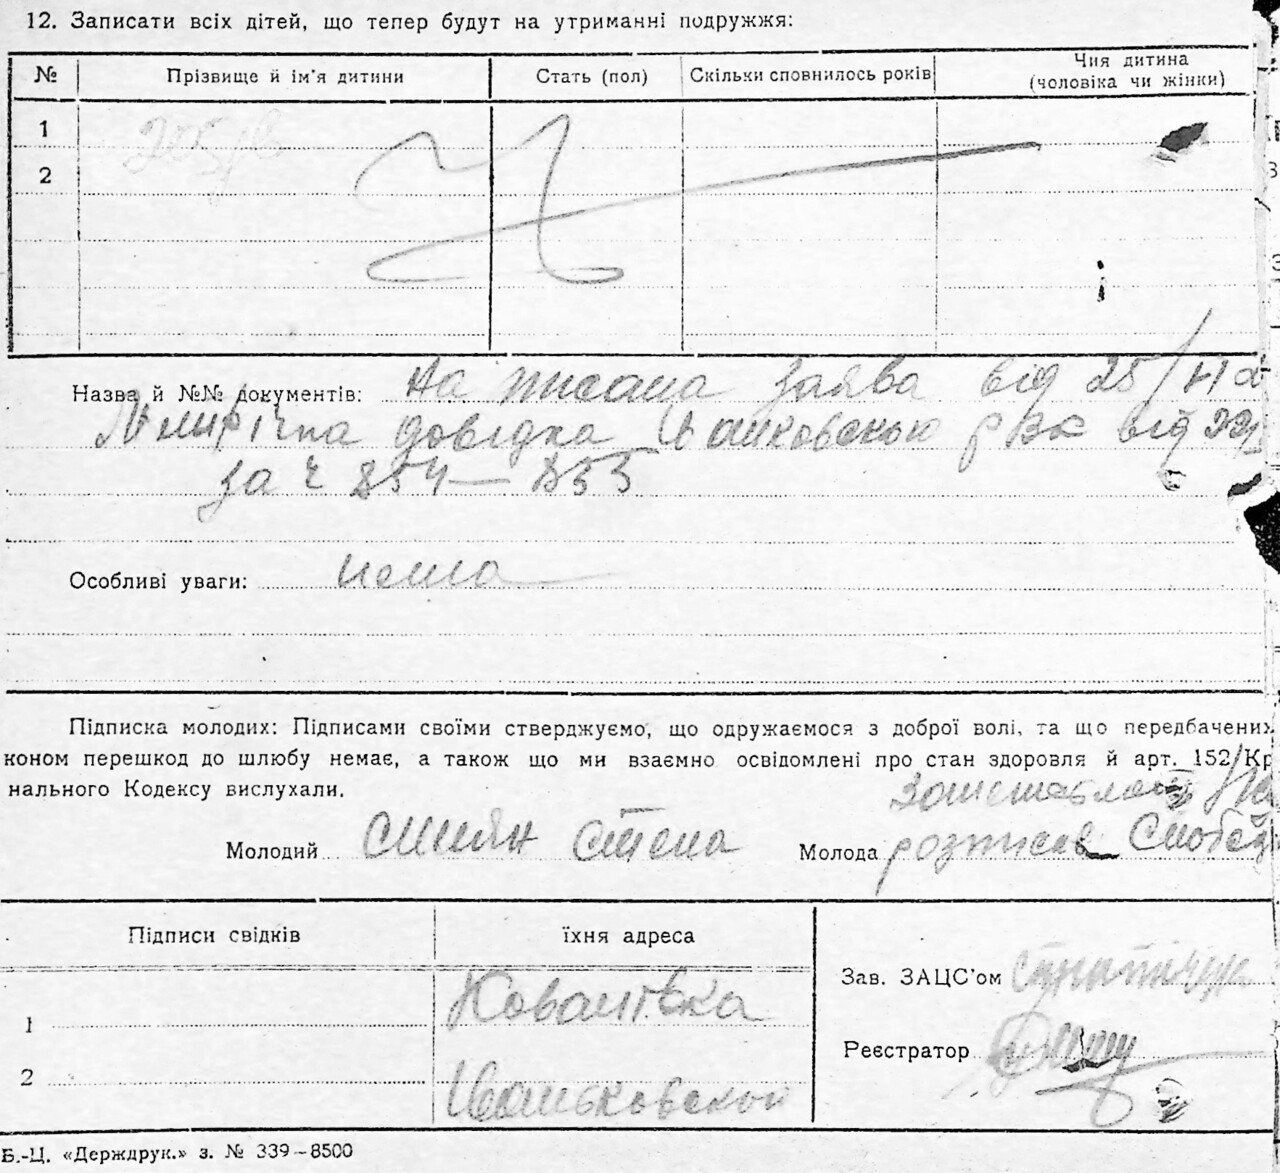 12. Записати всіх дітей, що тепер будут на утриманні подружжя:
№ Прізвище й ім'я дитини Стать (пол) Скільки сповнилось років Чия дитина (чоловіка чи жінки)
1
2
Назва й №№ документів: На писана заява від 25/
довідка РВК від 22
за ч 854—855
Особливі уваги: нема
Підписка молодих: Підписами своїми стверджуємо, що одружаємося з доброї волі, та що передбачених
коном перешкод до шлюбу немає, а також що ми взаємно освідомлені про стан здоров'я й арт. 152/Кр
нального Кодексу вислухали.
Молодий Смиян Степа Молода розписав
Підписи свідків їхня адреса
Зав. ЗАЦС'ом
1 Ковалівка
Реєстратор
2
Б.-Ц. «Держдрук.» з. № 339–8500